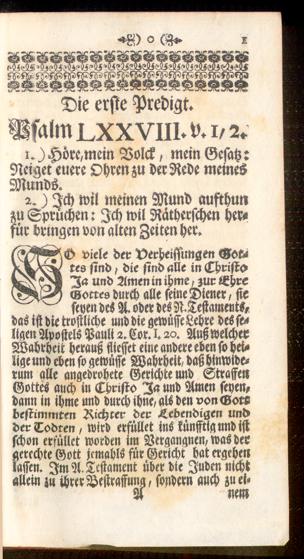 1
Die erste Predigt.
Psalm LXXVIII. v. 1, 2.
1. ) Höre, mein Volck, mein Gesatz:
Neiget euere Ohren zu der Rede meines
Munds.
2. ) Ich wil meinen Mund aufthun
zu Sprüchen: Ich wil Rätherschen her-
für bringen von alten Zeiten her.
SO viele der Verheissungen Got-
tes sind, die sind alle in Christo
Ja und Amen in ihme, zur Ehre
Gottes durch alle seine Diener, sie
seyen des A. oder des N. Testaments,
das ist die trostliche und die gewüsse Lehre des se-
ligen Apostels Pauli 2. Cor. I, 20. Auß welcher
Wahrheit herauß fliesset eine andere eben so hei-
lige und eben so gewüsse Wahrheit, daß hinwide-
rum alle angedrohete Gerichte und Straffen
Gottes auch in Christo Ja und Amen seyen,
dann in ihme und durch ihne, als den von Gott
bestimmten Richter der Lebendigen und
der Todten, wird erfüllet ins künftig und ist
schon erfüllet worden im Vergangnen, was der
gerechte Gott jemahls für Gericht hat ergehen
lassen. Im A. Testament über die Juden nicht
allein zu ihrer Bestraffung, sondern auch zu ei-
A nem